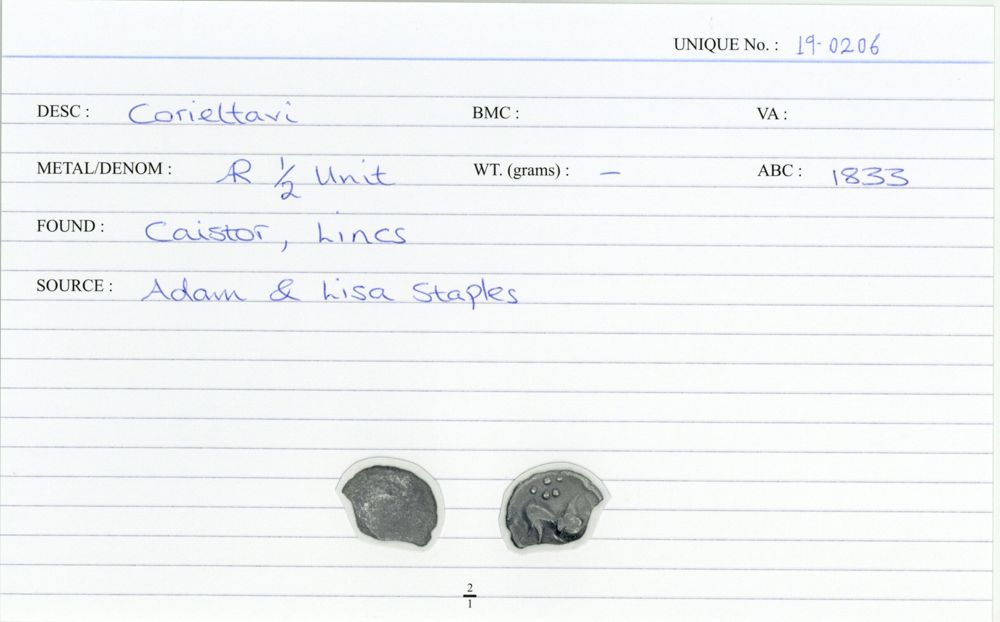 UNIQUE No. : 19-0206
DESC : Corieltavi BMC : VA :
METAL/DENOM : R 1/2 Unit WT. (grams) : – ABC : 1833
FOUND : Caistor, Lincs
SOURCE : Adam & Lisa Staples
2
1